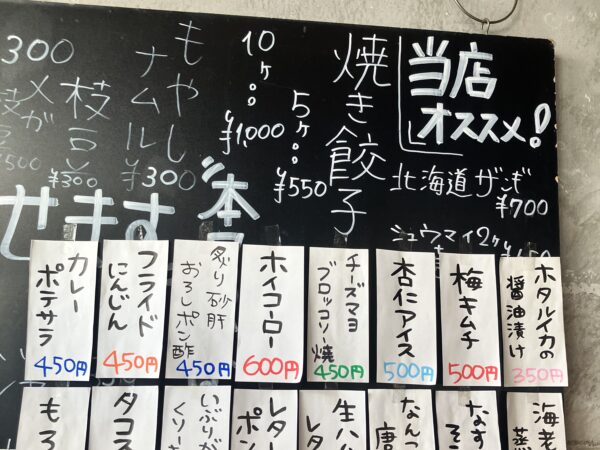 当店
オススメ!
北海道ザンギ
¥700
シュウマイ2ケ
焼き餃子
5ヶ:¥550
10ヶ:¥1,000
もやし
ナムル
¥300
枝豆
¥300
300
¥500
せます
本
ホタルイカの
醤油漬け
350円
梅キムチ
500円
杏仁アイス
500円
チーズマヨ
ブロッコリー焼
450円
ホイコーロー
600円
炙り砂肝
おろしポン酢
450円
フライド
にんじん
450円
カレー
ポテサラ
450円
海老
蒸
なす
なんっ
唐
生ハ
レタ
レター
ポン
いぶりが
くリー
タコス
もろ